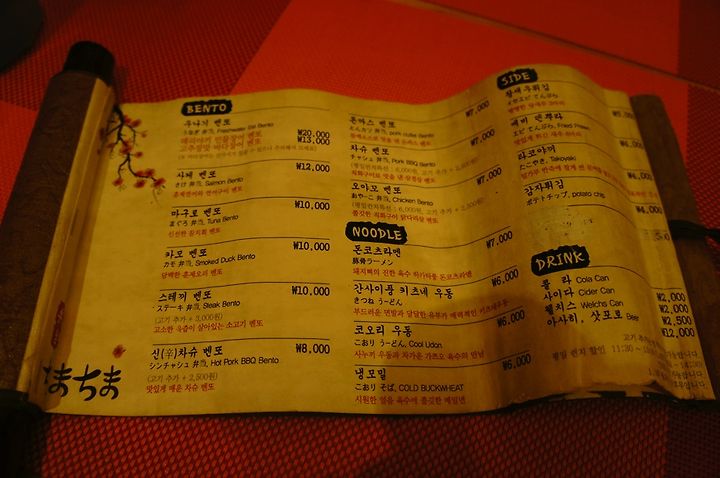 BENTO
우나기 벤또
うなぎ 弁当, Freshwater Eel Bento
₩20,000
₩13,000
사케 벤또
₩12,000
さけ 弁当, Salmon Bento
훈제연어와 연어구이 벤또
마구로 벤또
₩10,000
まぐろ 弁当, Tuna Bento
신선한 참치회 벤또
카모 벤또
₩10,000
カモ 弁当, Smoked Duck Bento
담백한 훈제오리 벤또
스테끼 벤또
₩10,000
ステーキ 弁当, Steak Bento
(고기 추가 + 3,000원)
고소한 육즙이 살아있는 소고기 벤또
신(辛)차슈 벤또
₩8,000
シンチャシュ 弁当, Hot Pork BBQ Bento
(고기 추가 + 2,500원)
맛있게 매운 차슈 벤또
돈까스 벤또
₩7,000
とんカツ 弁当, pork cutlet Bento
차슈 벤또
₩7,000
チャシュ 弁当, Pork BBQ Bento
오야꼬 벤또
₩7,000
おやこ 弁当, Chicken Bento
쫄깃한 직화구이 닭다리살 벤또
NOODLE
돈코츠라멘
₩7,000
豚骨ラーメン
돼지뼈의 진한 육수 하카타풍 돈코츠라멘
간사이풍 키츠네 우동
₩6,000
きつね うーどん
부드러운 면발과 달달한 유부가 매력적인 키츠네우동
코오리 우동
₩6,000
こおり うーどん, Cool Udon
사누끼 우동과 차가운 가쯔오 육수의 만남
냉모밀
₩6,000
こおり そば, COLD BUCKWHEAT
시원한 얼음 육수에 쫄깃한 메밀면
SIDE
왕새우튀김
₩5,000
에비 뗀뿌라
エビ てんぷら, Fried Prawn
타코야끼
₩4,000
たこやき, Takoyaki
감자튀김
₩4,000
ポテトチップ, potato chip
DRINK
콜 라 Cola Can
₩2,000
사이다 Cider Can
₩2,000
웰치스 Welchs Can
₩2,500
아사히, 삿포로 Beer
₩12,000
평일 런치 할인
まちま